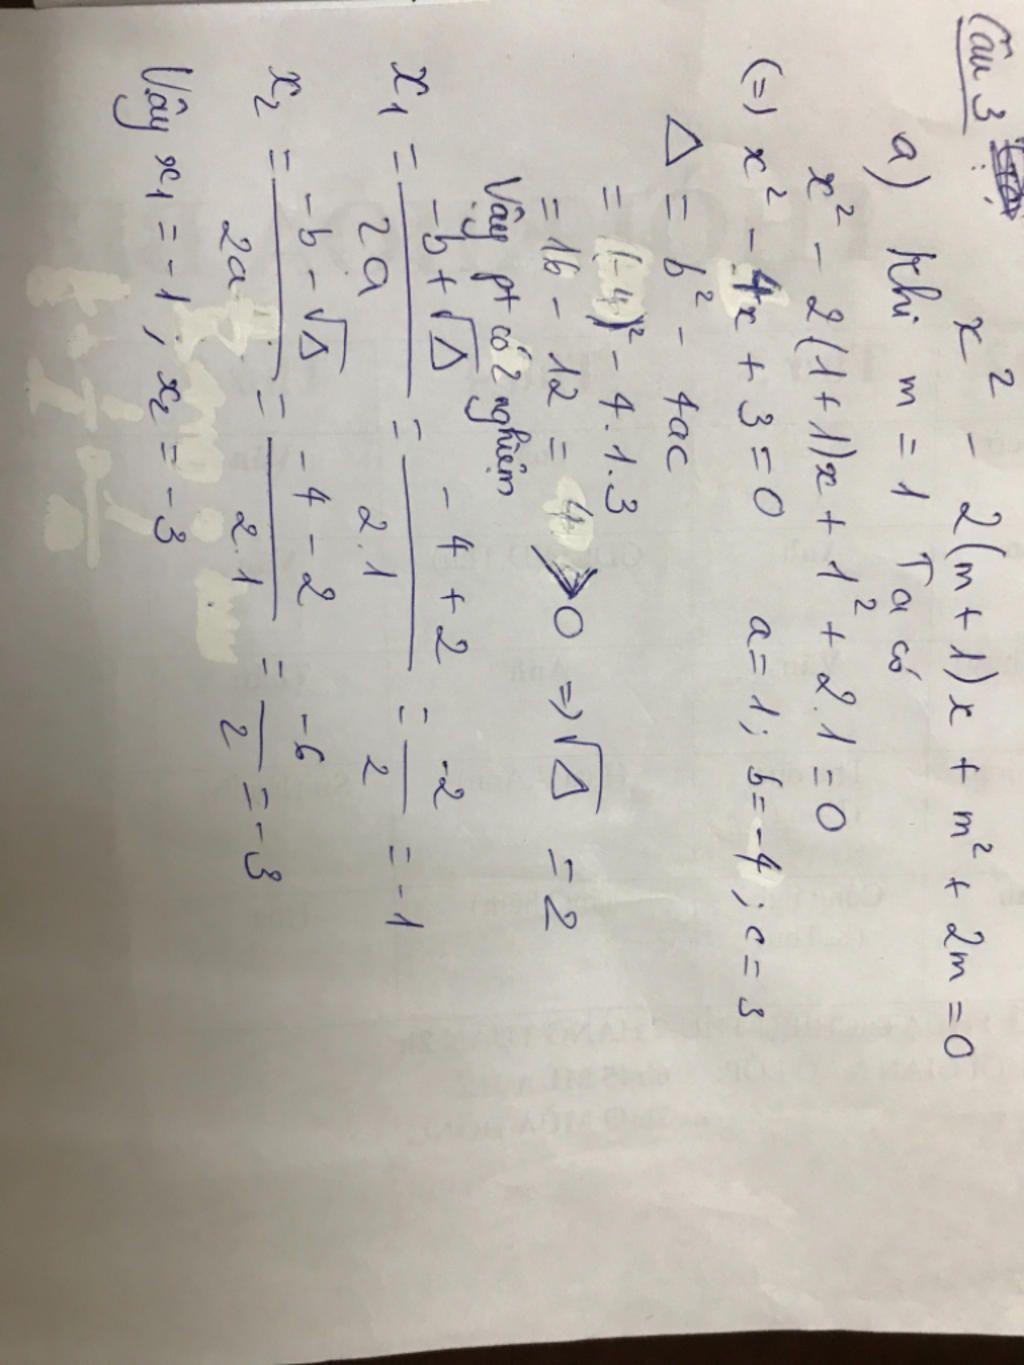 Câu 3
x² - 2(m+1)x + m² + 2m = 0
a) Khi m = 1 Ta có
x² - 2(1+1)x + 1² + 2.1 = 0
(=) x² - 4x + 3 = 0 a=1; b=-4; c=3
Δ = b² - 4ac
= (-4)² - 4.1.3
= 16 - 12 = 4 > 0 => √Δ = 2
Vậy pt có 2 nghiệm
x₁ = (-b+√Δ)/2a = (-4+2)/2.1 = -2/2 = -1
x₂ = (-b-√Δ)/2a = (-4-2)/2.1 = -6/2 = -3
Vậy x₁ = -1, x₂ = -3